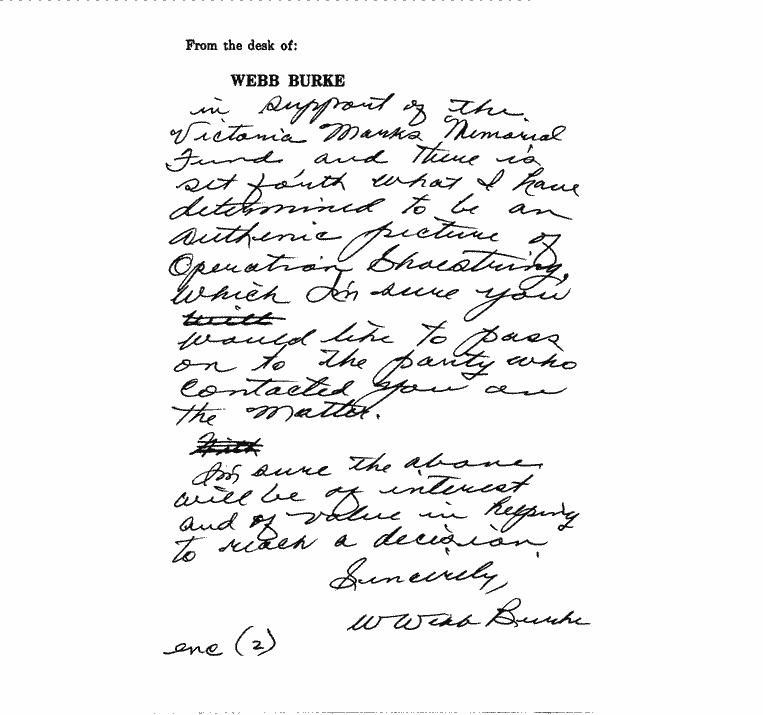 From the desk of:
WEBB BURKE
in support of the
Victoria Marks Memorial
Fund and there is
set fourth what I have
determined to be an
authenic picture of
Operation Shoestring,
which I'm sure you
would like to pass
on to the party who
contacted you on
the matter.
I'm sure the above
will be of interest
and of value in helping
to reach a decision.
Sincerely,
W Webb Burke
enc (2)